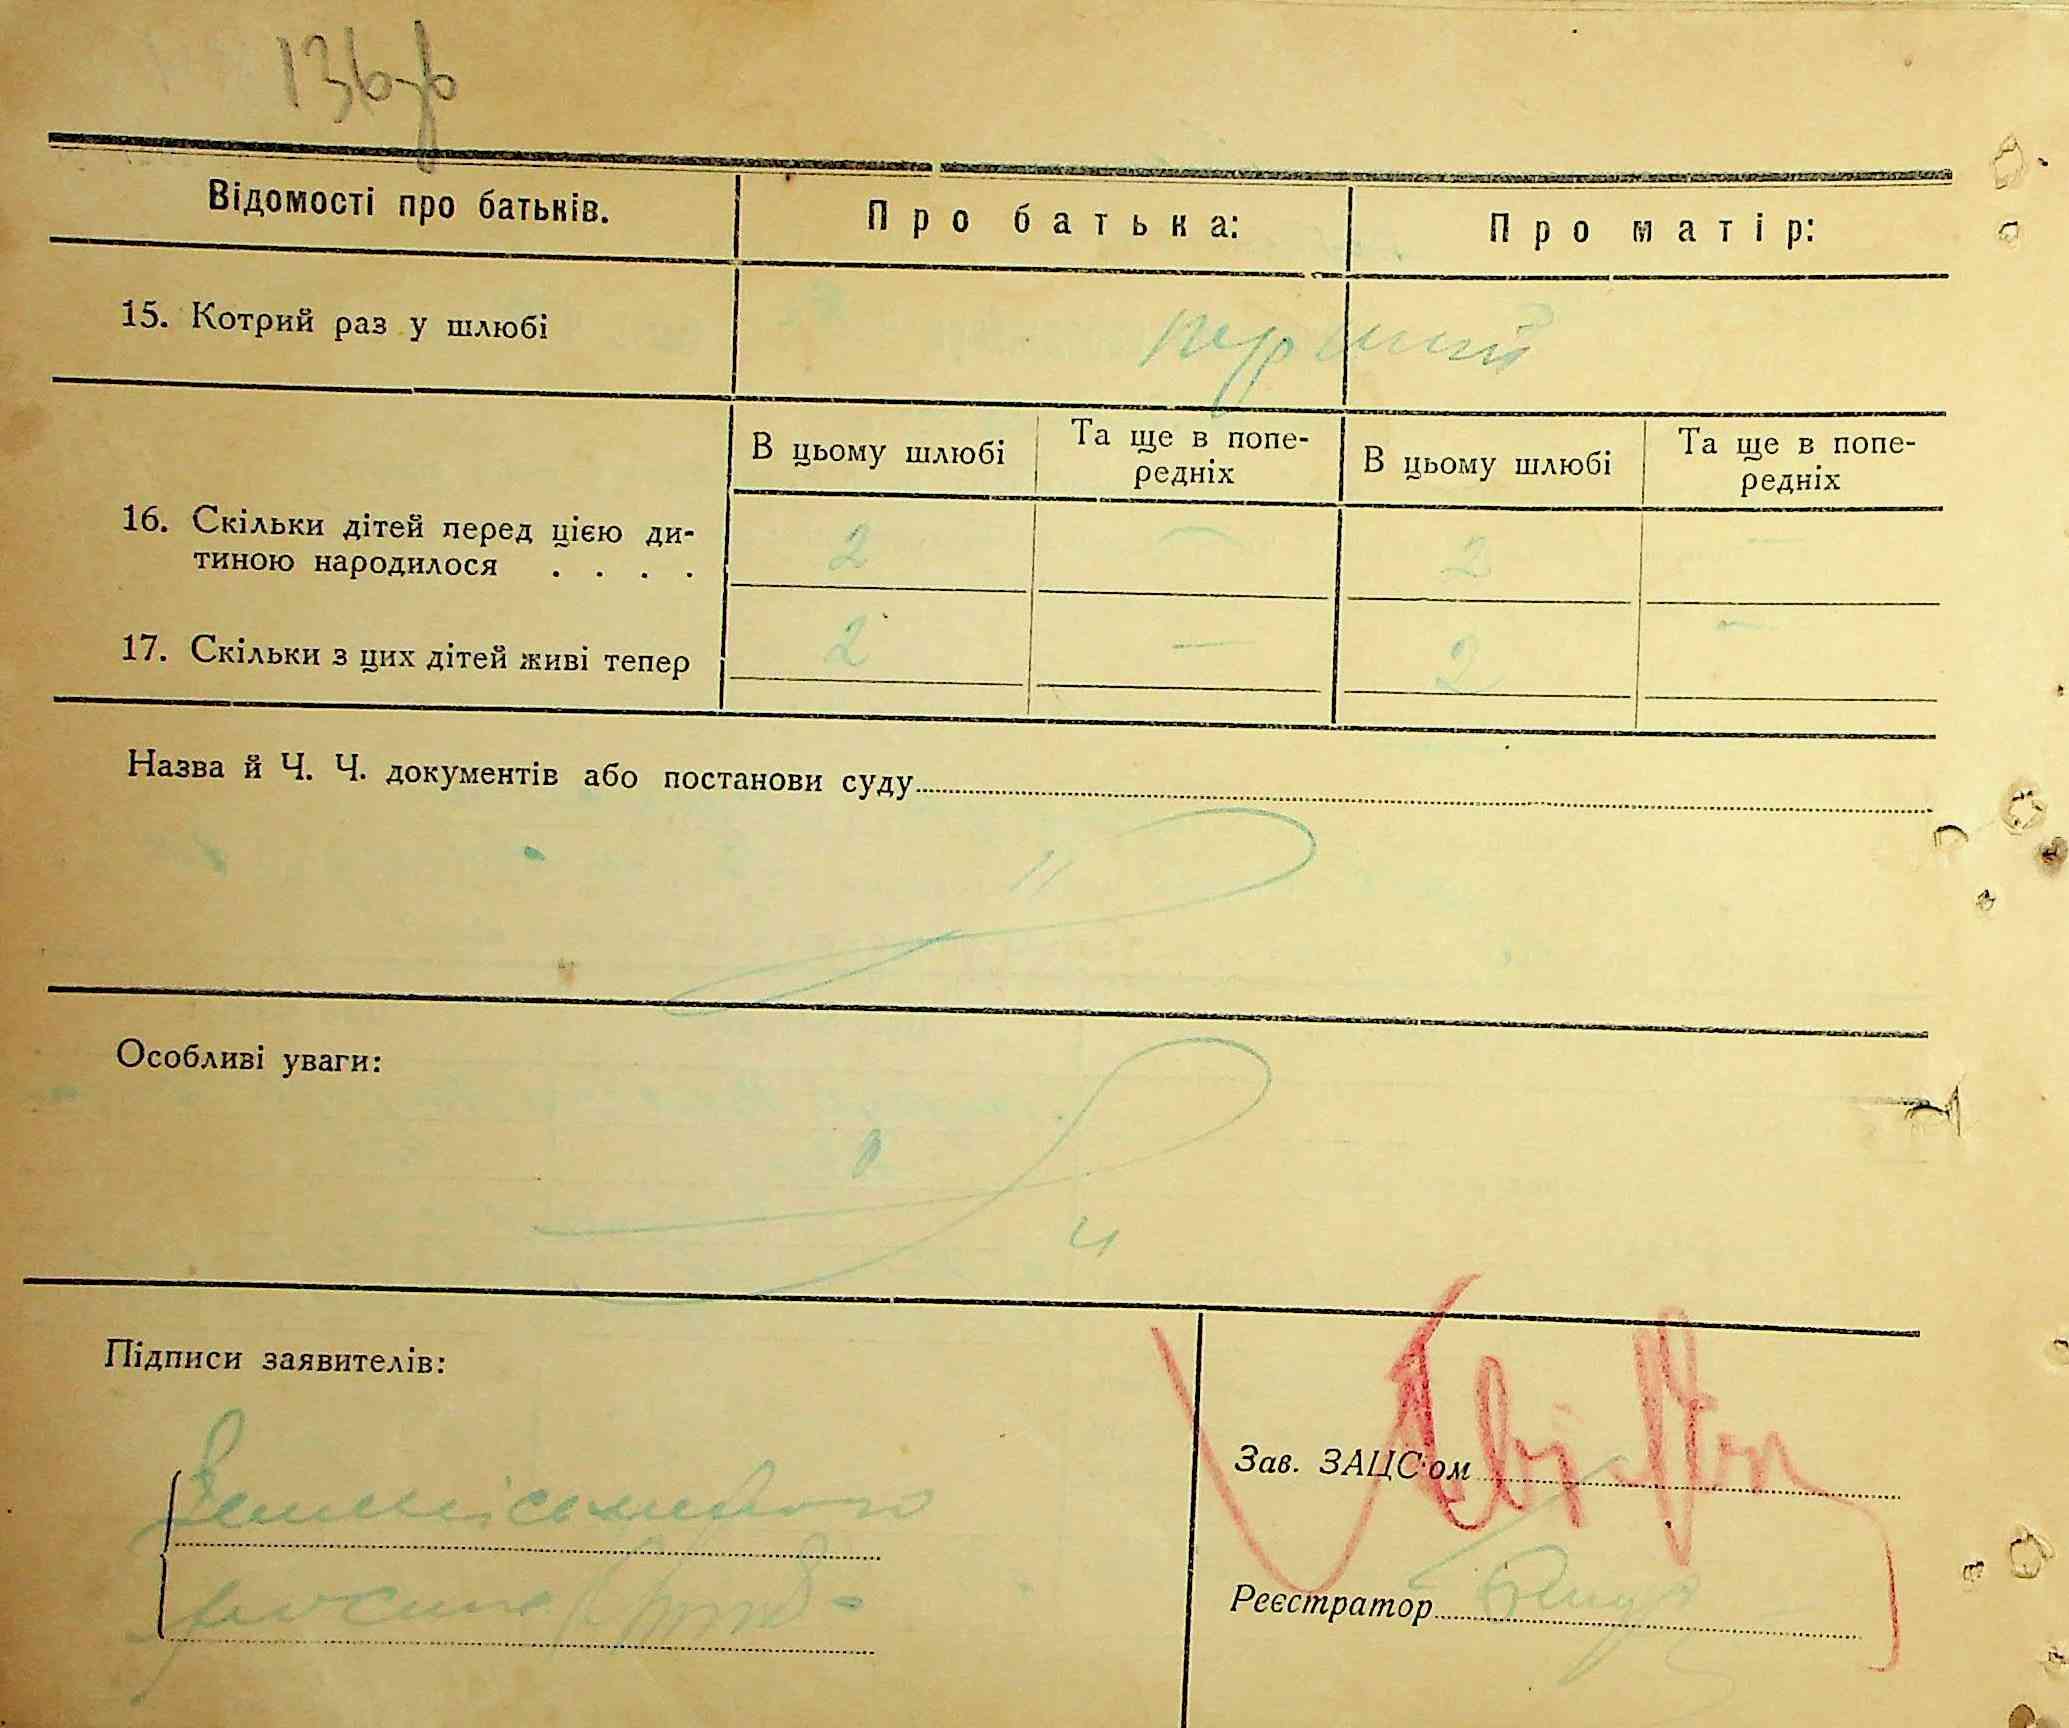 136
Відомості про батьків.
Про батька:
Про матір:
15. Котрий раз у шлюбі
перший
В цьому шлюбі
Та ще в попе-
редніх
В цьому шлюбі
Та ще в попе-
редніх
16. Скільки дітей перед цією ди-
тиною народилося . . . .
2 — 2 —
17. Скільки з цих дітей живі тепер
2 — 2 —
Назва й Ч. Ч. документів або постанови суду
Особливі уваги:
Підписи заявителів:
Зав. ЗАЦС·ом
Реєстратор